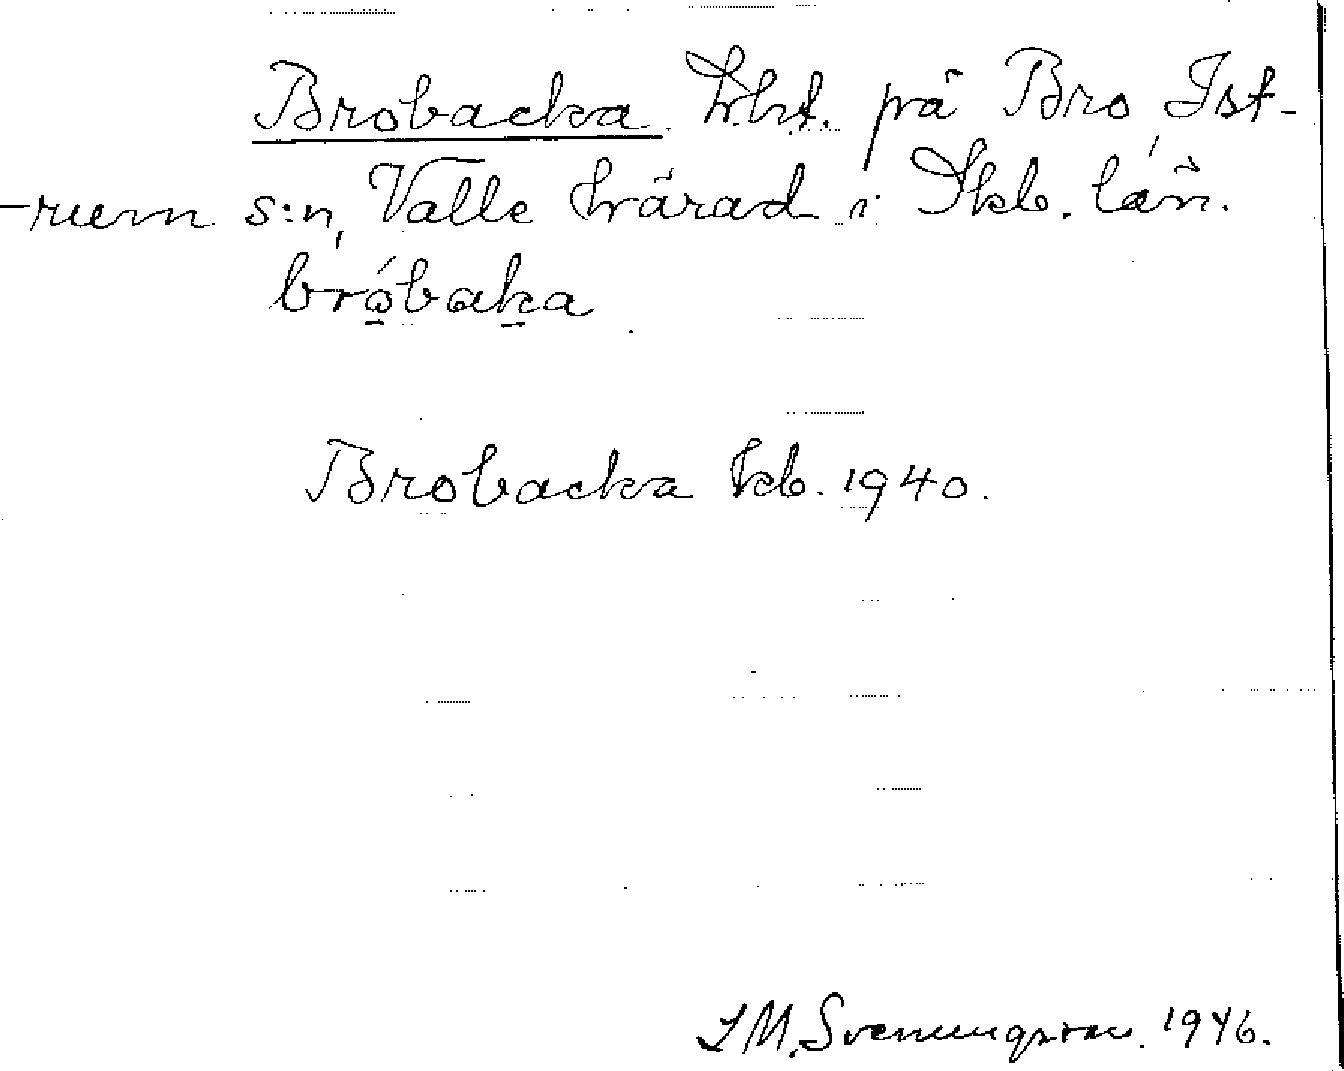 Brobacka hht. på Bro Ist-
-rum s:n, Valle härad i Skb. län.
bró̱baḵa
Brobacka kb. 1940.
J M. Svenungsson. 1946.